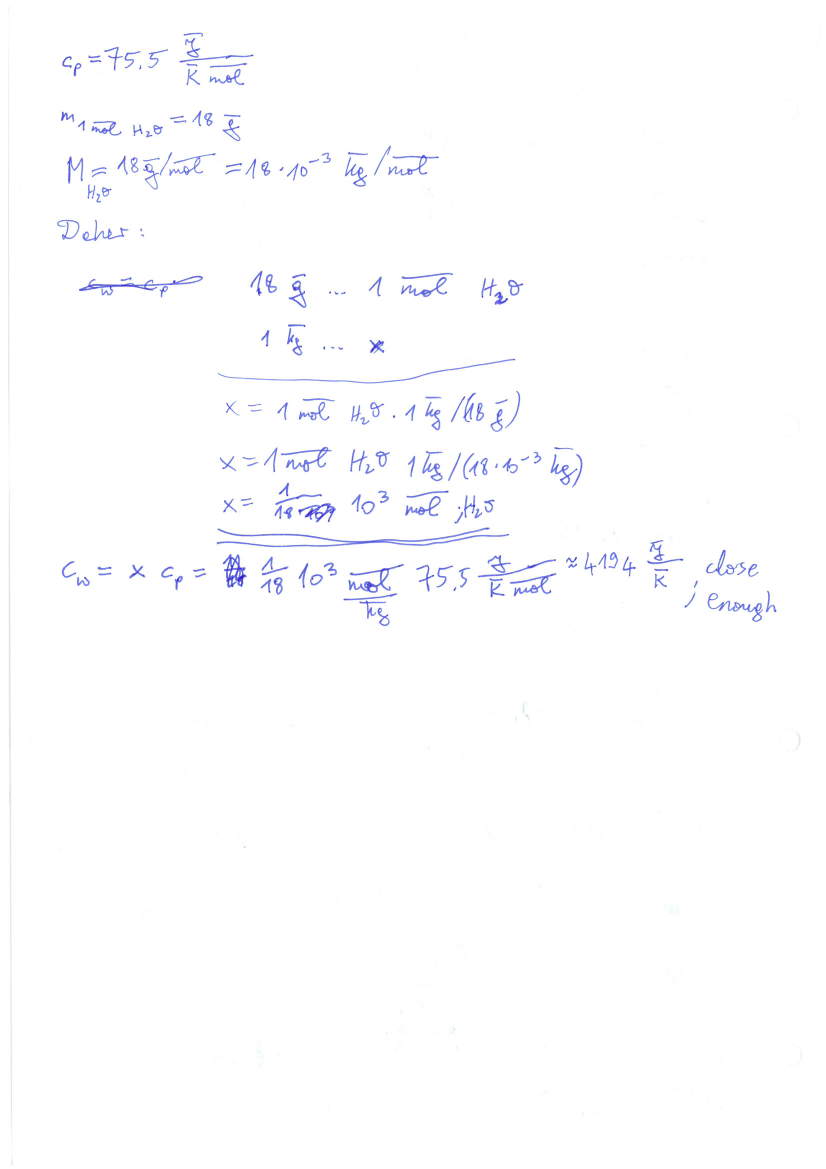 c_p = 75.5 J̄/(K̄ m̅o̅l̅)
m_{1 m̅o̅l̅ H₂O} = 18 ḡ
M_{H₂O} = 18 ḡ/m̅o̅l̅ = 18·10⁻³ k̅g̅/m̅o̅l̅
Daher:
18 ḡ ... 1 m̅o̅l̅ H₂O
1 k̅g̅ ... x
x = 1 m̅o̅l̅ H₂O · 1 k̅g̅/(18 ḡ)
x = 1 m̅o̅l̅ H₂O 1 k̅g̅/(18·10⁻³ k̅g̅)
x = 1/18 10³ m̅o̅l̅ ; H₂O
c_w = x c_p = 1/18 10³ m̅o̅l̅/k̅g̅ 75.5 J̄/(K̄ m̅o̅l̅) ≈ 4194 J̄/K̄ ; close enough